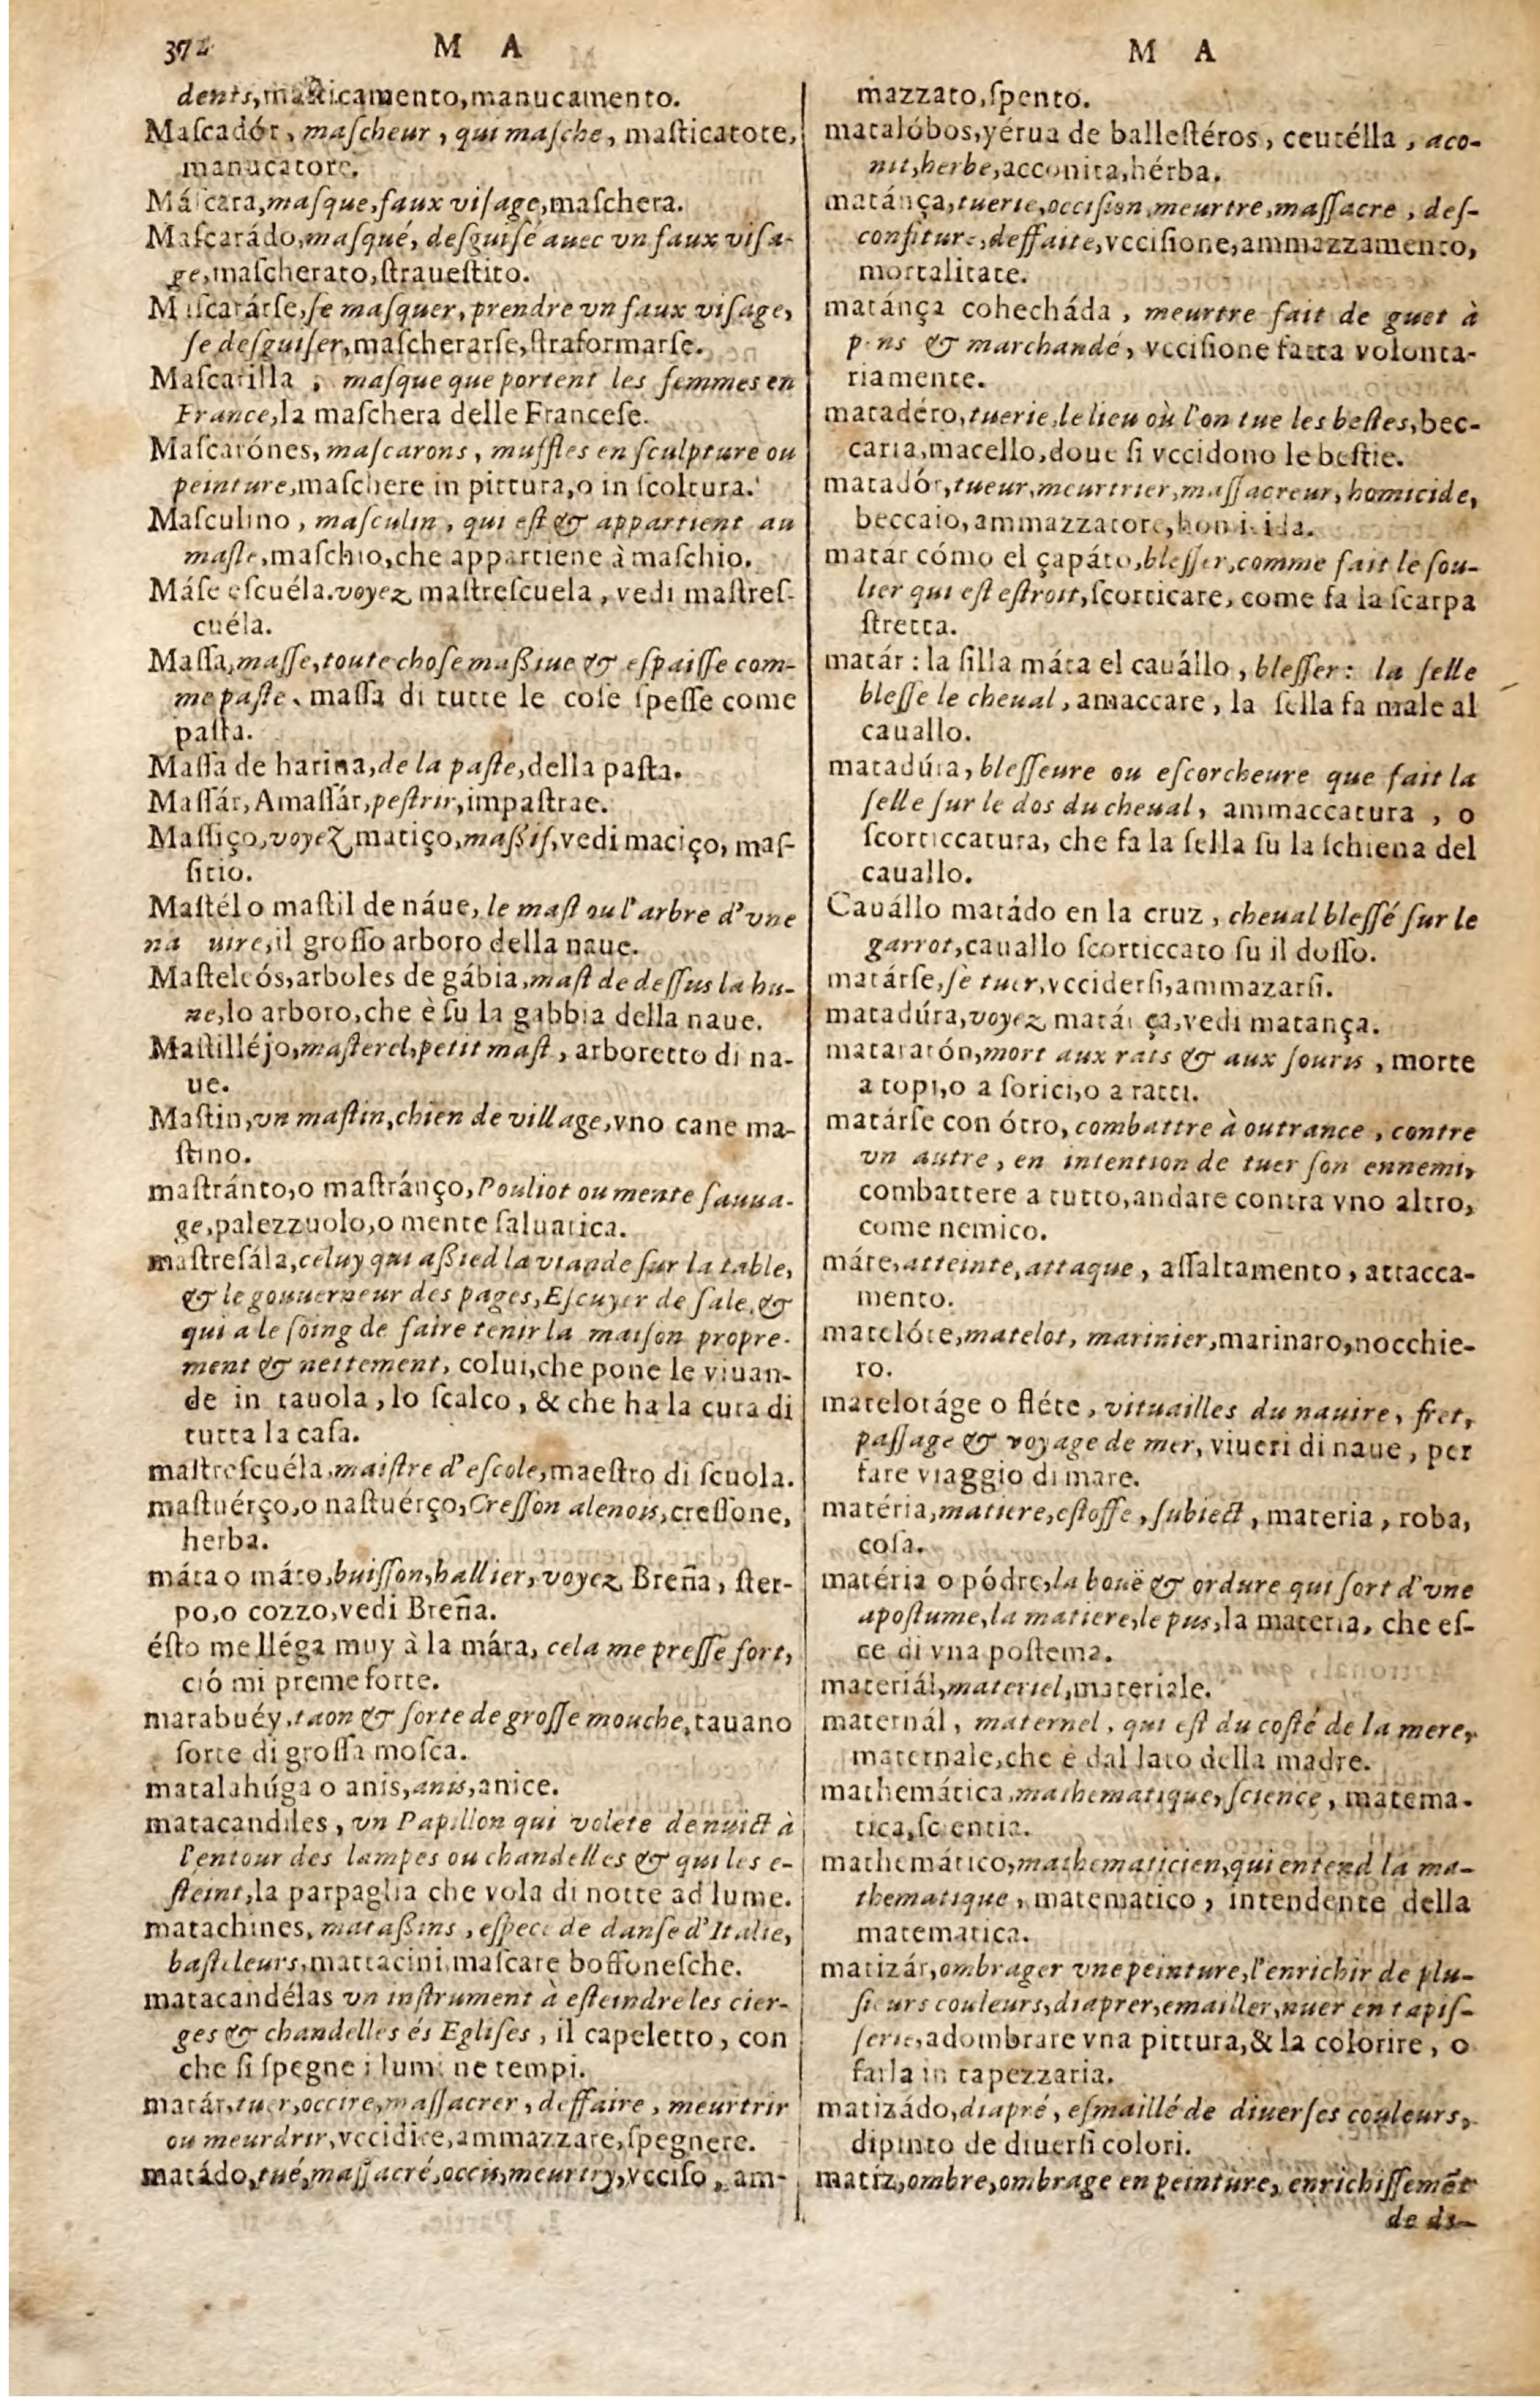 372 M A
dents, masticamento, manucamento.
Maſcadór, maſcheur, qui maſche, maſticatore,
manucatore.
Máſcara, maſque, faux viſage, maſchera.
Maſcarádo, maſqué, deſguiſé auec vn faux viſa-
ge, maſcherato, ſtraueſtito.
Maſcarárſe, ſe maſquer, prendre vn faux viſage,
ſe deſguiſer, maſcherarſe, ſtraformarſe.
Maſcarilla, maſque que portent les femmes en
France, la maſchera delle Franceſe.
Maſcarónes, maſcarons, muffles en ſculpture ou
peinture, maſchere in pittura, o in ſcoltura.
Maſculino, maſculin, qui eſt & appartient au
maſle, maſchio, che appartiene à maſchio.
Máſe eſcuéla. voyez maſtreſcuela, vedi maſtreſ-
cuéla.
Maſſa, maſſe, toute choſe maßiue & eſpaiſſe com-
me paſte, maſſa di tutte le coſe ſpeſſe come
paſta.
Maſſa de harina, de la paſte, della paſta.
Maſſár, Amaſſár, peſtrir, impaſtrae.
Maſſiço, voyez matiço, maßiſ, vedi maciço, maſ-
ſitio.
Maſtél o maſtil de náue, le maſt ou l'arbre d'vne
na uire, il groſſo arboro della naue.
Maſteleós, arboles de gábia, maſt de deſſus la hu-
ne, lo arboro, che è ſu la gabbia della naue.
Maſtilléjo, maſterel, petit maſt, arboretto di na-
ue.
Maſtin, vn maſtin, chien de village, vno cane ma-
ſtino.
maſtránto, o maſtránço, Pouliot ou mente ſauua-
ge, palezzuolo, o mente ſaluatica.
maſtreſála, celuy qui aßied la viande ſur la table,
& le gouuerneur des pages, Eſcuyer de ſale, &
qui a le ſoing de faire tenir la maiſon propre-
ment & nettement, colui, che pone le viuan-
de in tauola, lo ſcalco, & che ha la cura di
tutta la caſa.
maſtreſcuéla, maiſtre d'eſcole, maeſtro di ſcuola.
maſtuérço, o naſtuérço, Creſſon alenois, creſſone,
herba.
máta o máto, buiſſon, hallier, voyez Breña, ſter-
po, o cozzo, vedi Breña.
éſto me lléga muy à la máta, cela me preſſe fort,
ció mi preme forte.
matabuéy, taon & ſorte de groſſe mouche, tauano
ſorte di groſſa moſca.
matalahúga o anis, anis, anice.
matacandiles, vn Papillon qui volete de nuict à
l'entour des lampes ou chandelles & qui les e-
ſteint, la parpaglia che vola di notte ad lume.
matachines, mataßins, eſpece de danſe d'Italie,
baſteleurs, mattacini, maſcare boffoneſche.
matacandélas vn inſtrument à eſteindre les cier-
ges & chandelles és Egliſes, il capeletto, con
che ſi ſpegne i lumi ne tempi.
matár, tuer, occire, maſſacrer, deffaire, meurtrir
ou meurdrir, vccidire, ammazzare, ſpegnere.
matádo, tué, maſſacré, occis, meurtry, vcciſo, am-
M A
mazzato, ſpento.
matalóbos, yérua de balleſtéros, ceutélla, aco-
nit, herbe, acconita, hérba.
matánça, tuerie, occiſion, meurtre, maſſacre, deſ-
confiture, deffaite, vcciſione, ammazzamento,
mortalitate.
matánça cohecháda, meurtre fait de guet à
pens & marchandé, vcciſione fatta volonta-
riamente.
matadéro, tuerie, le lieu où l'on tue les beſtes, bec-
caria, macello, doue ſi vccidono le beſtie.
matadór, tueur, meurtrier, maſſacreur, homicide,
beccaio, ammazzatore, homicida.
matár cómo el çapáto, bleſſer, comme fait le ſou-
lier qui eſt eſtroit, ſcorticare, come fa la ſcarpa
ſtretta.
matár: la ſilla máta el cauállo, bleſſer: la ſelle
bleſſe le cheual, amaccare, la ſella fa male al
cauallo.
matadúra, bleſſeure ou eſcorcheure que fait la
ſelle ſur le dos du cheual, ammaccatura, o
ſcorticcatura, che fa la ſella ſu la ſchiena del
cauallo.
Cauállo matádo en la cruz, cheual bleſſé ſur le
garrot, cauallo ſcorticcato ſu il doſſo.
matárſe, ſe tuer, vcciderſi, ammazarſi.
matadúra, voyez matánça, vedi matança.
mataratón, mort aux rats & aux ſouris, morte
a topi, o a ſorici, o a ratti.
matárſe con ótro, combattre à outrance, contre
vn autre, en intention de tuer ſon ennemi,
combattere a tutto, andare contra vno altro,
come nemico.
máte, atteinte, attaque, aſſaltamento, attacca-
mento.
matelóte, matelot, marinier, marinaro, nocchie-
ro.
matelotáge o fléte, vituailles du nauire, fret,
paſſage & voyage de mer, viueri di naue, per
fare viaggio di mare.
matéria, matiere, eſtoffe, ſubiect, materia, roba,
coſa.
matéria o pódre, la bouë & ordure qui ſort d'vne
apoſtume, la matiere, le pus, la materia, che eſ-
ce di vna poſtema.
materiál, materiel, materiale.
maternál, maternel, qui eſt du coſté de la mere,
maternale, che è dal lato della madre.
mathemática, mathematique, ſcience, matema-
tica, ſcientia.
mathemático, mathematicien, qui entend la ma-
thematique, matematico, intendente della
matematica.
matizár, ombrager vne peinture, l'enrichir de plu-
ſieurs couleurs, diaprer, emailler, nuer en tapiſ-
ſerie, adombrare vna pittura, & la colorire, o
farla in tapezzaria.
matizádo, diapré, eſmaillé de diuerſes couleurs,
dipinto de diuerſi colori.
matíz, ombre, ombrage en peinture, enrichiſſemẽt
de di-